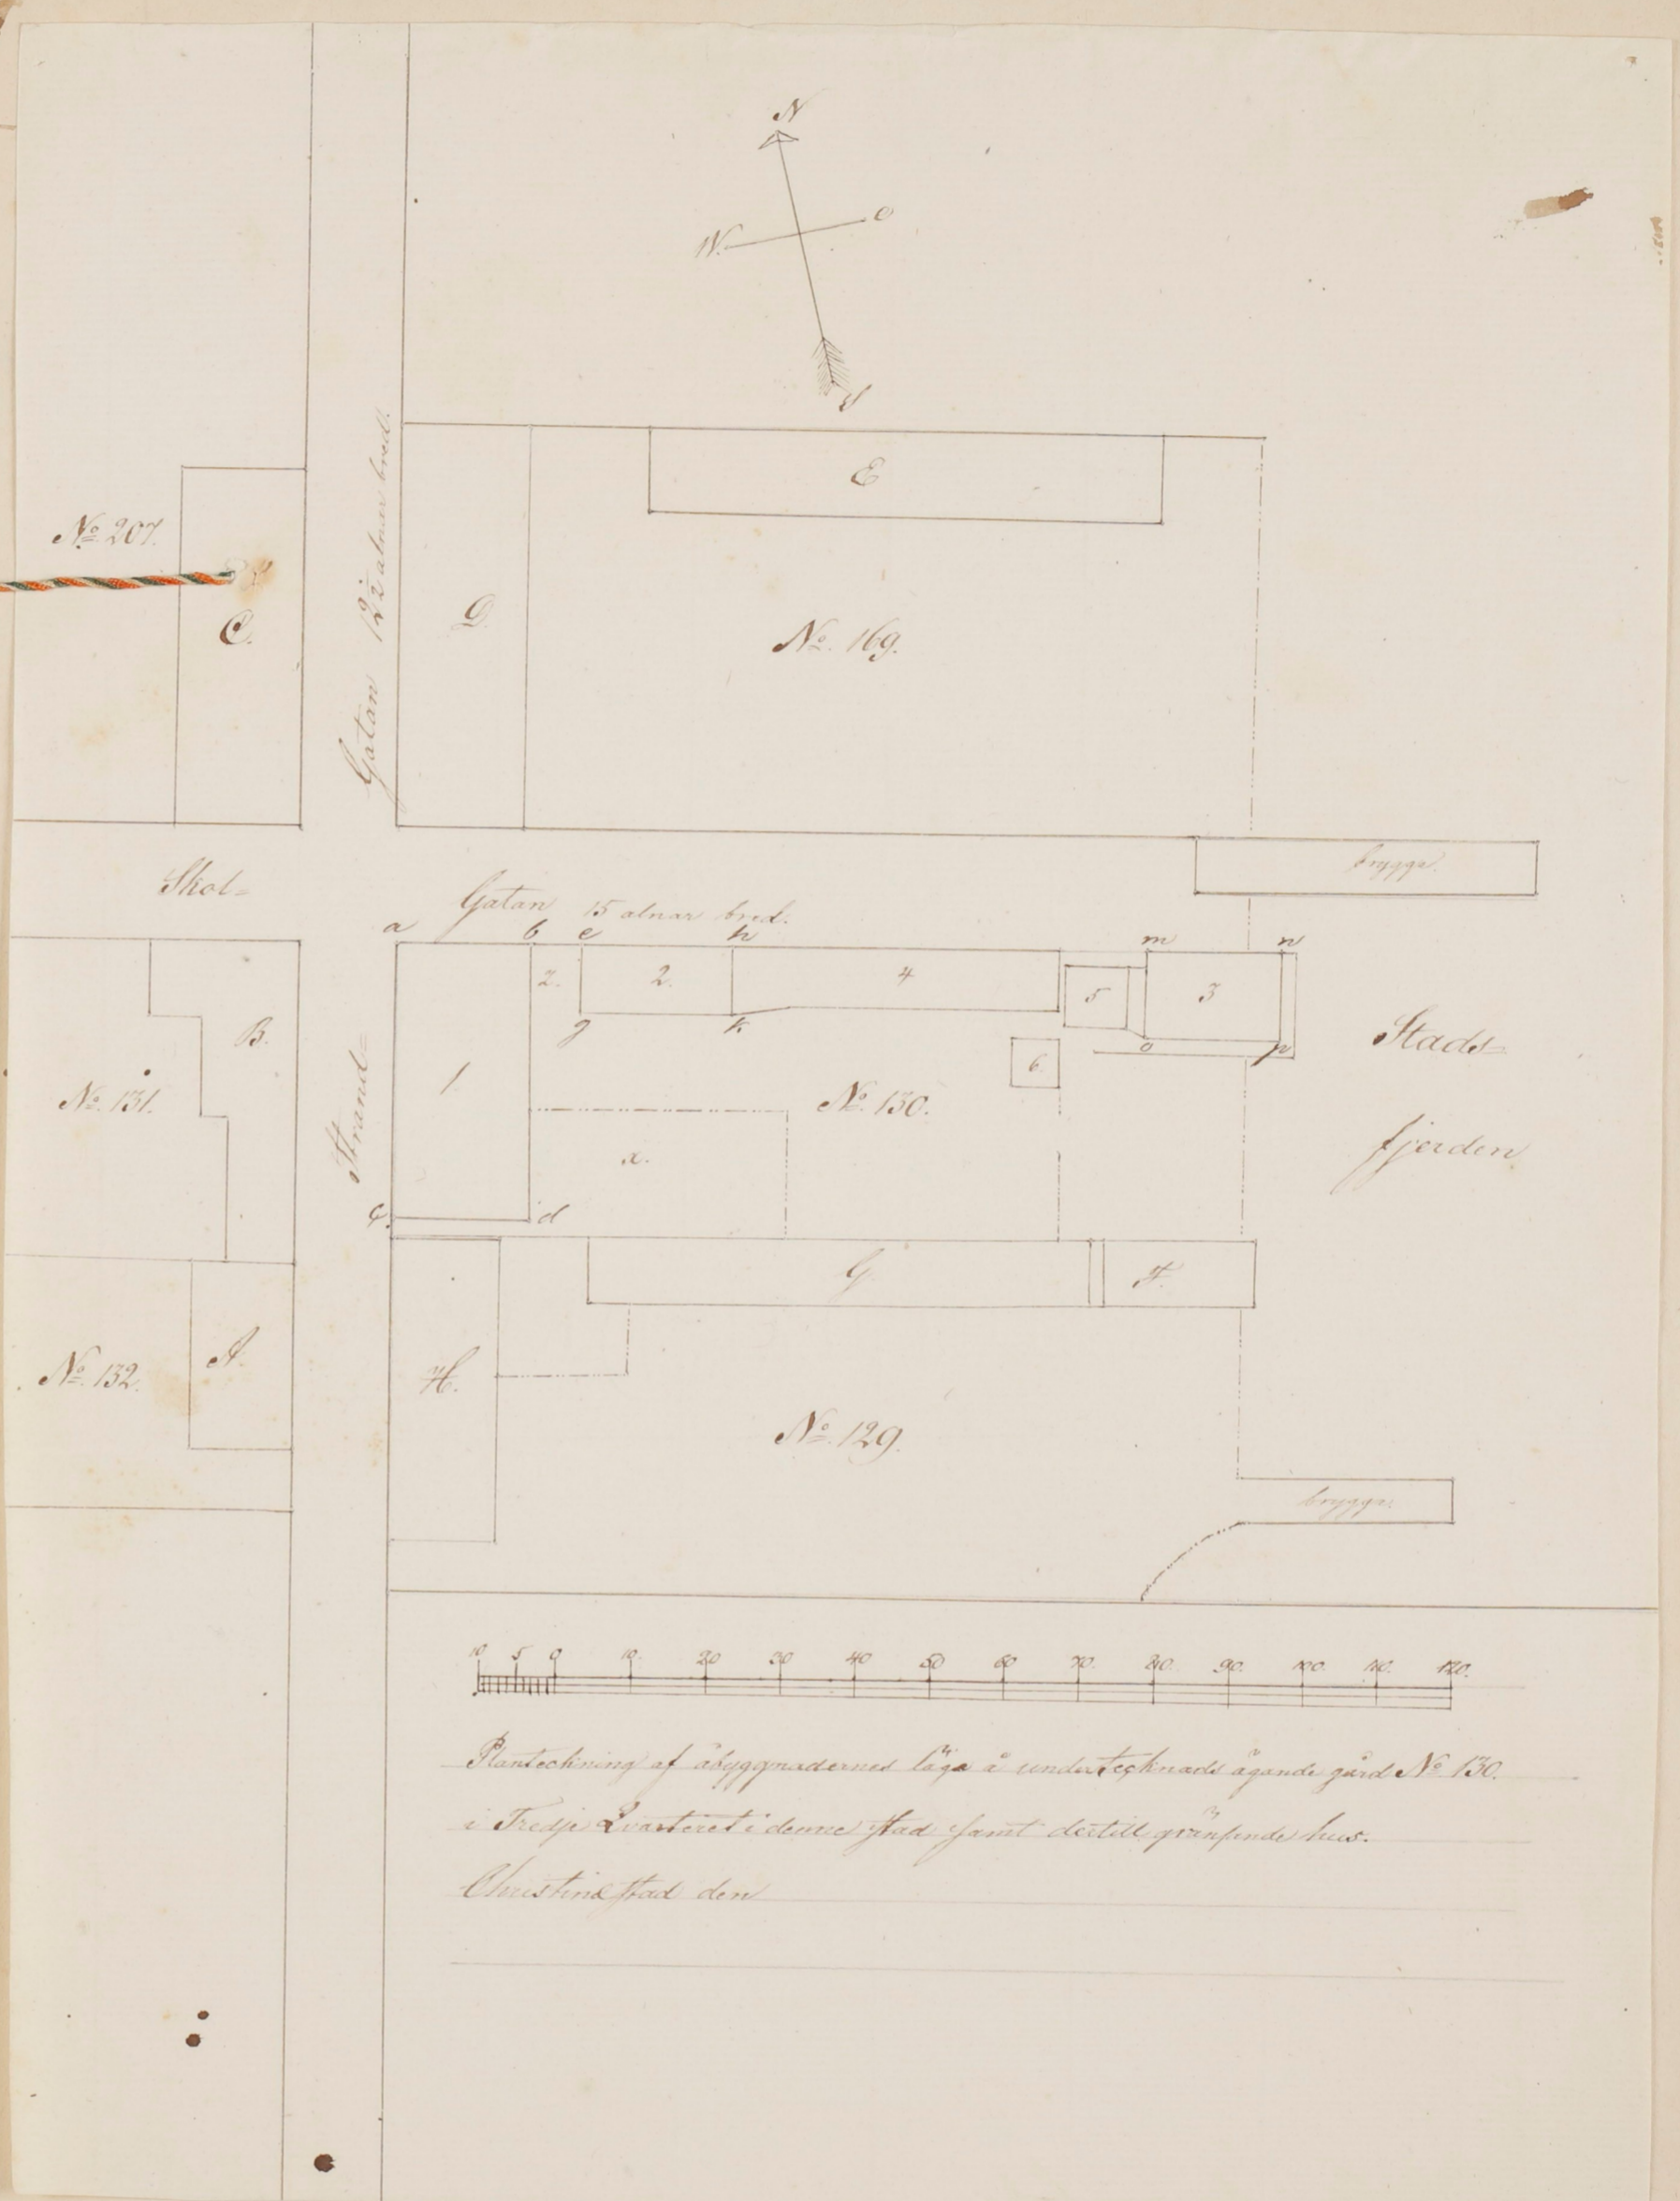 N
W. O
S
E
No. 207.
C.
Gatan 12½ alnar bred.
D.
No. 169.
brygga.
Skol=
Gatan 15 alnar bred.
a b e h m n
2. 2. 4 5 3
g k o p
B.
1
6
Stads=
No. 131.
Strand=
No. 130.
x.
fjerden
c. d
G F.
No. 132. A.
H.
No. 129.
brygga.
10 5 0 10. 20 30 40 50 60 70. 80. 90. 100. 110. 120.
Planteckning af åbyggnadernes läge å undertecknads ägande gård No 130.
i Tredje Qvarteret i denne stad samt dertill gränsende hus.
Christinæstad den